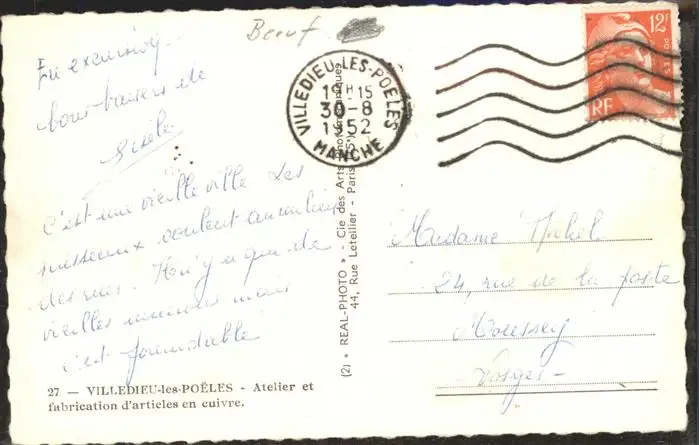 Beruf
En excursion
bons baisers de
Gisèle
C'est une vieille ville les
ruisseaux coulent au milieu
des rues. Il n'y a que de
vieilles maisons mais
c'est formidable
27 — VILLEDIEU-les-POÊLES - Atelier et
fabrication d'articles en cuivre.
(2) • REAL-PHOTO » - Cie des Arts
44, Rue Letellier - Paris
VILLEDIEU-LES-POÊLES
19H15
30-8
1952
MANCHE
12F
RF
Madame
24, rue de la poste
Moussey
Vosges